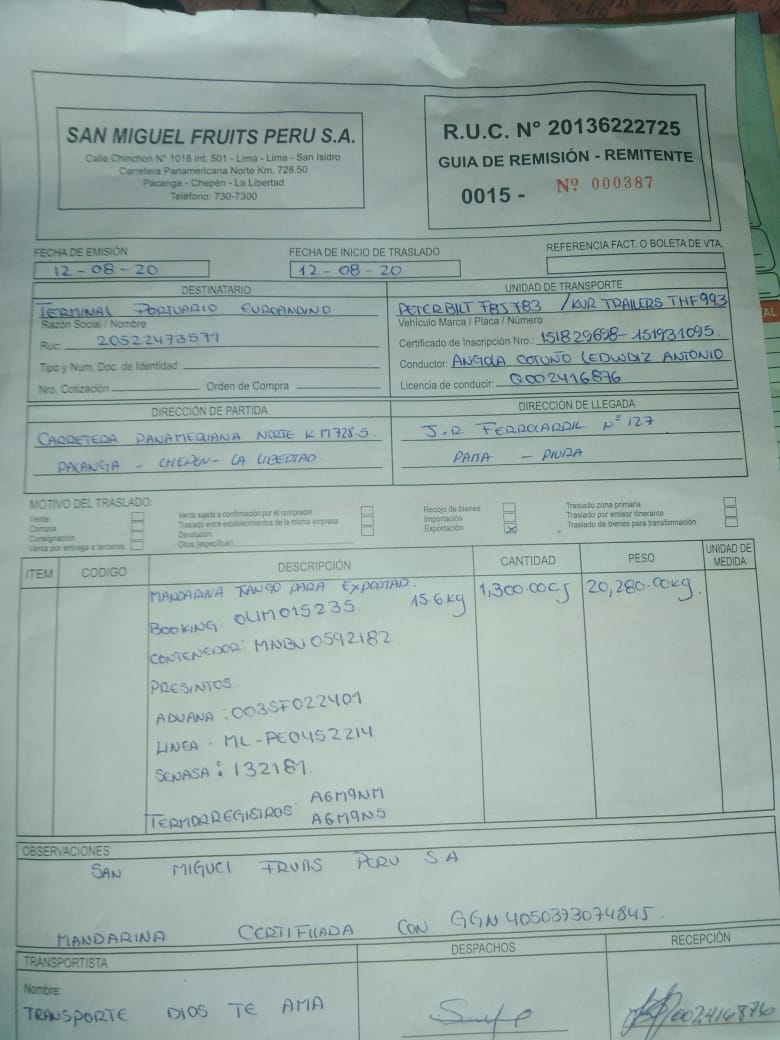 SAN MIGUEL FRUITS PERU S.A.
Calle Chinchon N° 1018 Int. 501 - Lima - Lima - San Isidro
Carretera Panamericana Norte Km. 728.50
Pacanga - Chepén - La Libertad
Teléfono: 730-7300
R.U.C. N° 20136222725
GUIA DE REMISIÓN - REMITENTE
0015 - Nº 000387
FECHA DE EMISIÓN
12-08-20
FECHA DE INICIO DE TRASLADO
12-08-20
REFERENCIA FACT. O BOLETA DE VTA.
DESTINATARIO
TERMINAL PORTUARIO EUROANDINO
Razón Social / Nombre
Ruc: 20522473571
Tipo y Num. Doc. de Identidad:
Nro. Cotización Orden de Compra
UNIDAD DE TRANSPORTE
PETERBILT / KUR TRAILERS THF993
Vehículo Marca / Placa / Número
Certificado de Inscripción Nro.: 151829698 - 151931095
Conductor: ANGOLA ANTONIO
Licencia de conducir: Q002416876
DIRECCIÓN DE PARTIDA
CARRETERA PANAMERIANA NORTE KM728.5
PACANGA - CHEPEN - LA LIBERTAD
DIRECCIÓN DE LLEGADA
J.R FERROCARRIL Nº 127
PAITA - PIURA
MOTIVO DEL TRASLADO:
Venta
Compra
Consignación
Venta por entrega a terceros
Venta sujeta a confirmación por el comprador
Traslado entre establecimientos de la misma empresa
Devolución
Otros (especificar)
Recojo de bienes
Importación
Exportación X
Traslado zona primaria
Traslado por emisor itinerante
Traslado de bienes para transformación
ITEM CODIGO DESCRIPCIÓN CANTIDAD PESO UNIDAD DE MEDIDA
MANDARINA TANGO PARA EXPORTAR. 1,300.00CJ 20,280.00kg.
BOOKING: OLIM015235. 15.6kg
CONTENEDOR: MNBU0592182
PRESINTOS.
ADUANA : 003SF022401
LINEA : ML-PE0452214
SENASA : 132181.
TERMORREGISTROS: A6M9NM
A6M9NS
OBSERVACIONES
SAN MIGUEL FRUITS PERU S A
MANDARINA CERTIFICADA CON GGN 4050373074845.
TRANSPORTISTA
Nombre:
TRANSPORTE DIOS TE AMA
DESPACHOS
RECEPCIÓN
002416876